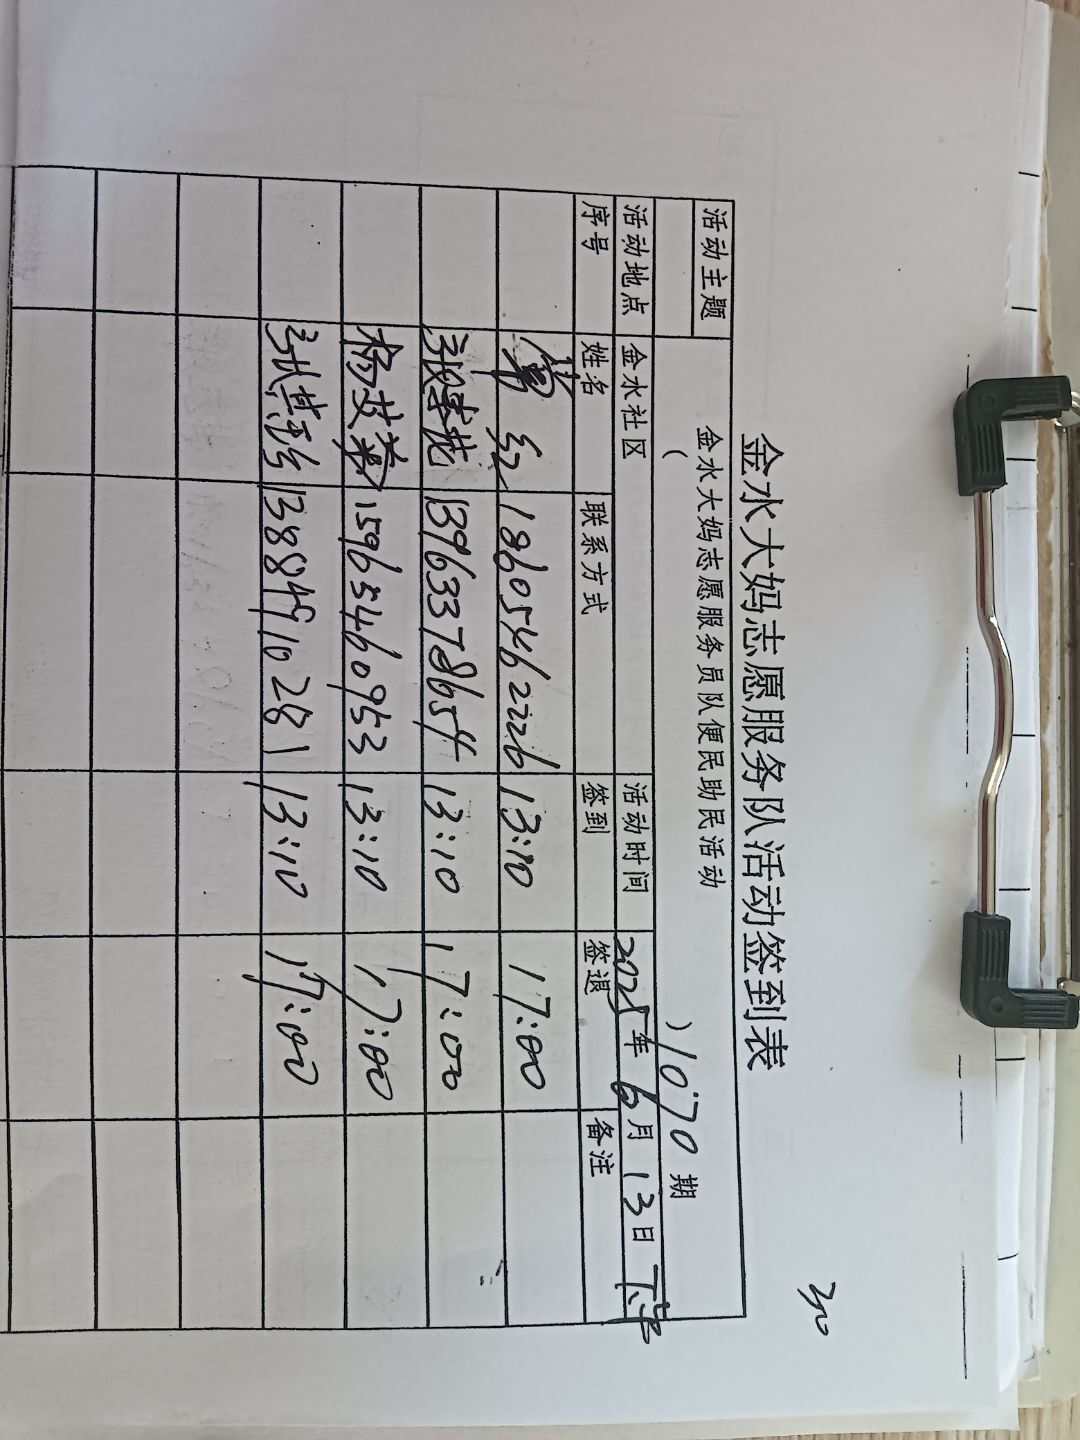 金水大妈志愿服务队活动签到表
活动主题 金水大妈志愿服务员队便民助民活动
( ) 1070 期
活动地点 金水社区 活动时间 2025年 6月 13日 下午
序号 姓名 联系方式 签到 签退 备注
红 18605462226 13:10 17:00
张 花 13963378654 13:10 17:00
杨艾菊 15965460953 13:10 17:00
张其珍 13884910281 13:10 17:00